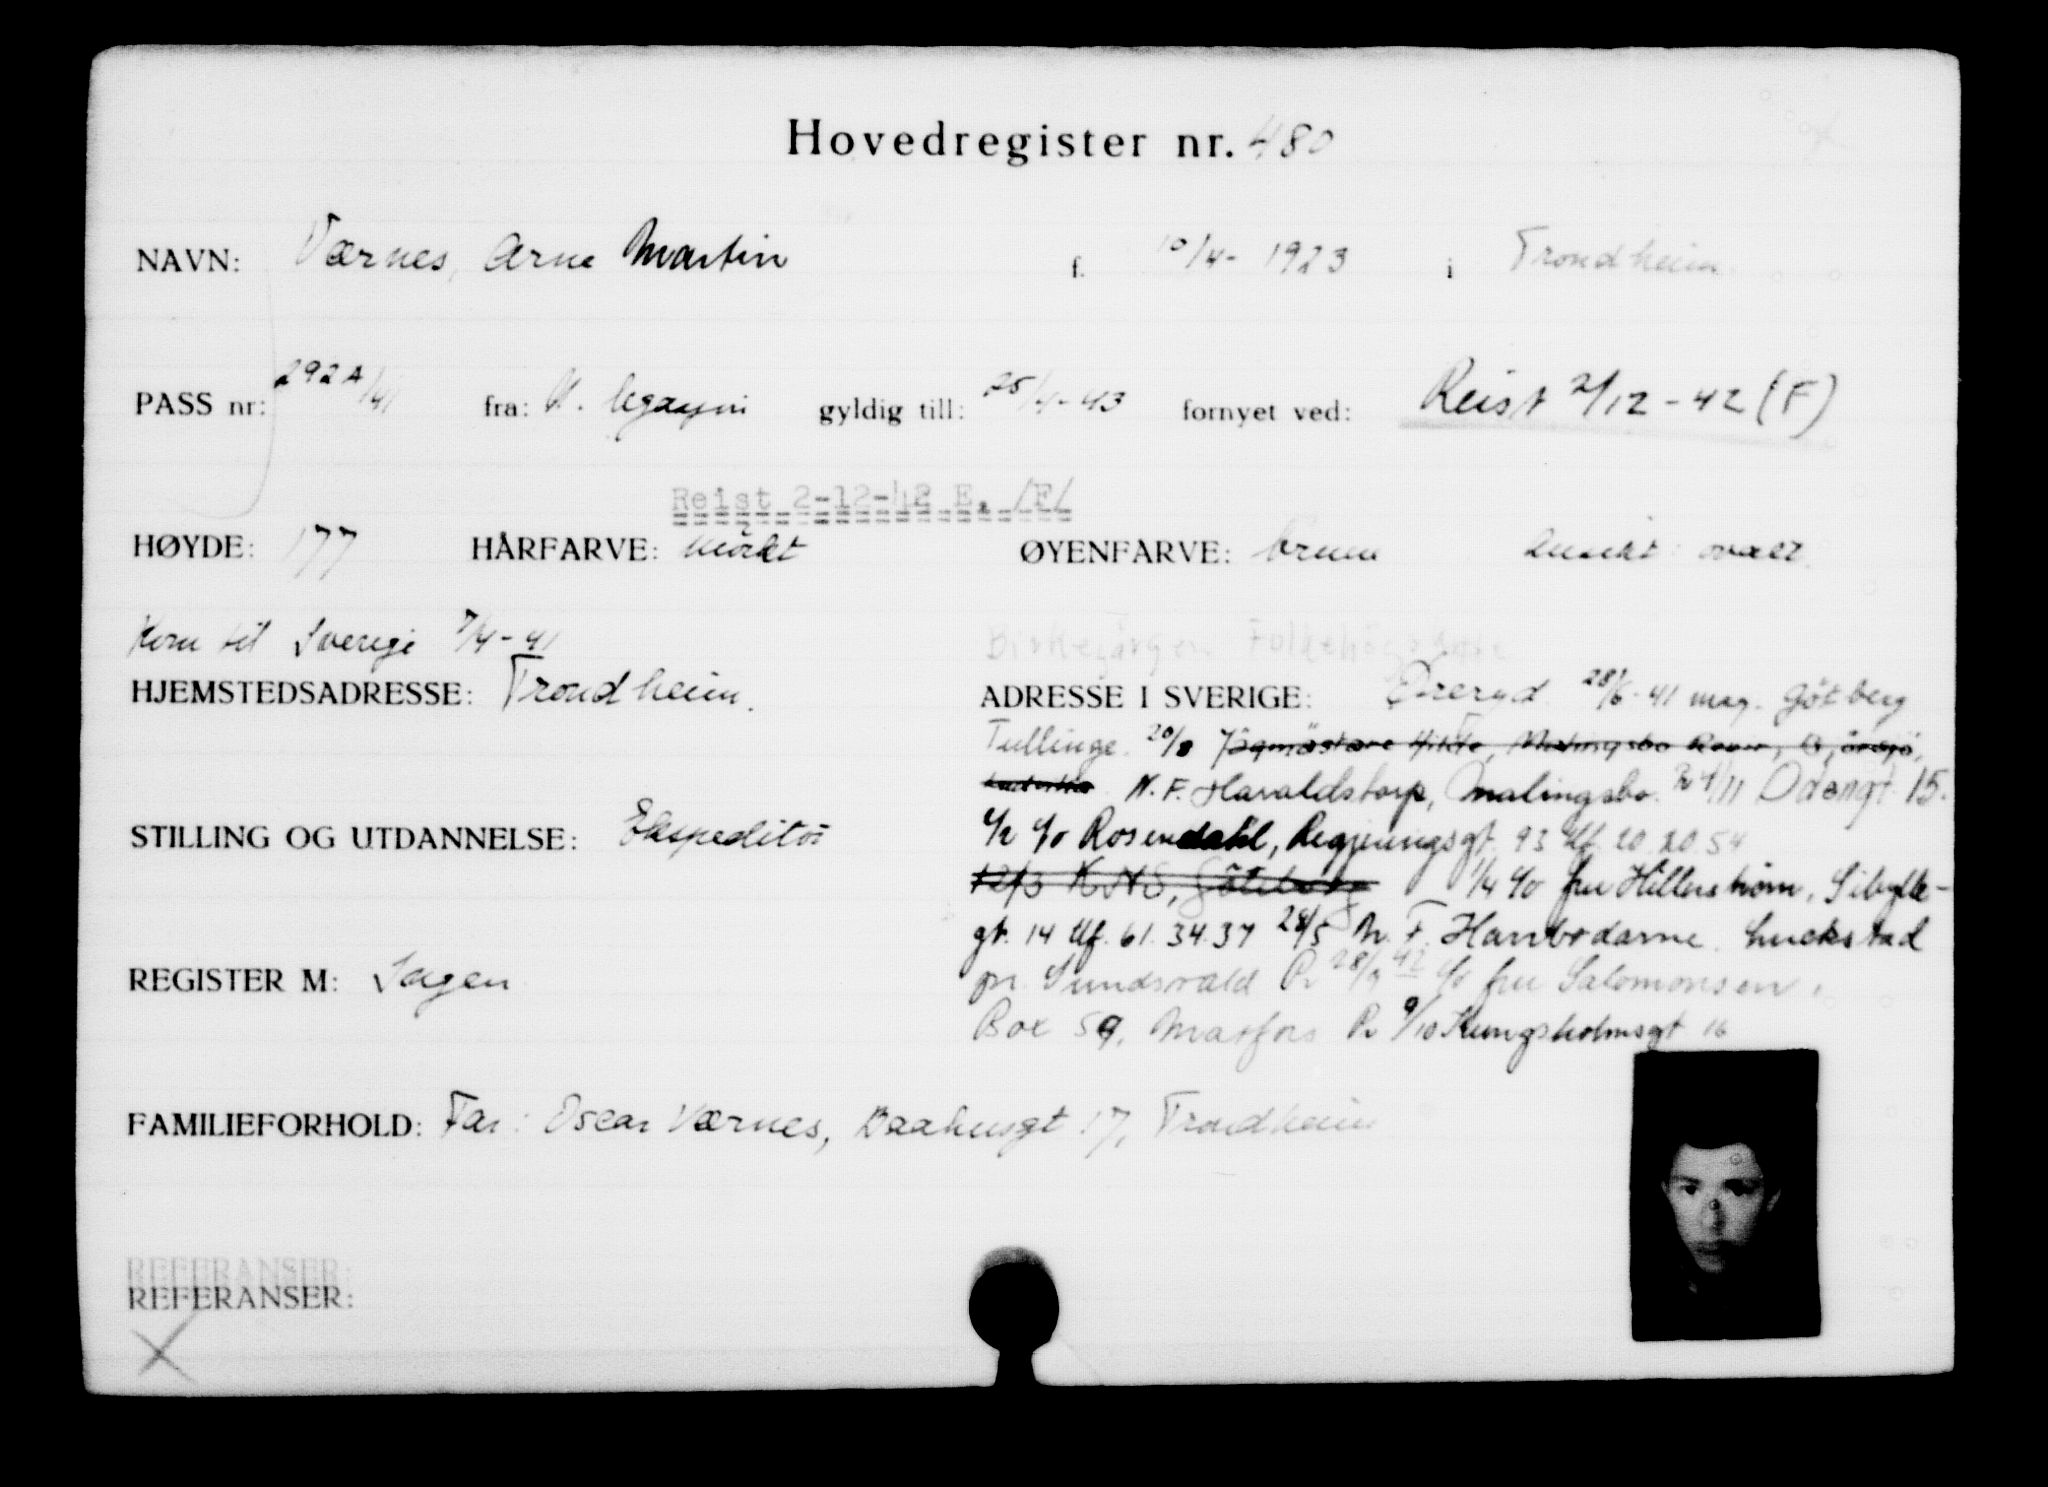 Hovedregister nr. 480
NAVN: Værnes, Arne Martin f. 10/4- 1923 i Trondheim
PASS nr: 292A/41 fra: N. legasjon gyldig till: 25/4-43 fornyet ved: Reist 2/12-42 (F)
Reist 2-12-42 E. /F/
HØYDE: 177 HÅRFARVE: mörkt ØYENFARVE: brune Ansikt: ovalt
Kom til Sverige 7/4-41
HJEMSTEDSADRESSE: Trondheim.
ADRESSE I SVERIGE: Öreryd 28/6-41 mag. Götberg
Tullinge. 20/8 Jägmästare
N.F. Haraldstorp, Malingsbo. R 4/11 Odengt 15.
STILLING OG UTDANNELSE: Ekspeditör
c/o Rosendahl, Regjeringsgt. 93 tlf. 20 20 54
12/3 K.N.S, Göteborg 1/4 c/o fru Hillerström, Sibylle-
gt. 14 tlf. 61.34.37 28/5 N.F. Harrbodarne
REGISTER M: Sagen
pr. Sundsvald R 28/9 42 c/o fru Salomonsen,
Box 59, Matfors R 9/10 Kungsholmsgt 16
FAMILIEFORHOLD: Far: Oscar Værnes, Baahusgt 17, Trondheim
REFERANSER:
REFERANSER:
X